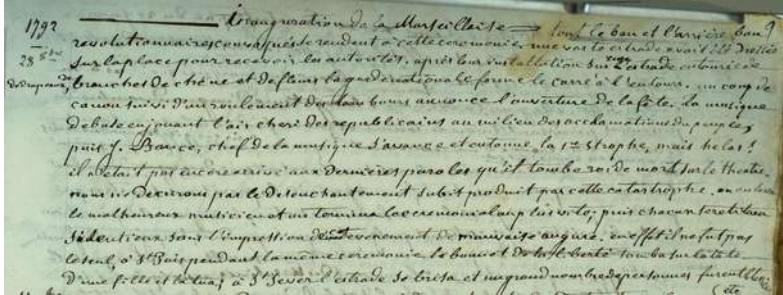 1792 Inauguration de la Marseillaise tout le ban et l'arrière ban
revolutionnaires convoqués se rendent à cette ceremonie, une vaste estrade avait été dressée
28 8bre sur la place pour recevoir les autorités, après leur installation sur cette estrade entourée de
de drapeaux, de branches de chêne et de fleurs la garde nationale forme le carré à l'entour. un coup de
canon suivi d'un roulement des tambours annonce l'ouverture de la fête. la musique
debute en jouant l'air cheri des republicains au milieu des acclamations du peuple,
puis J. Bauce, chef de la musique s'avance et entonne la 1re strophe, mais helas!
il n'était pas encore arrivé aux dernières paroles qu'il tombe roide mort sur le theatre.
nous ne decrirons pas le desenchantement subit produit par cette catastrophe. on enleve
le malheureux musicien et on termine la ceremonie au plus vite; puis chacun se retire
silentieux sous l'impression de cet evenement de mauvaise augure. en effet il ne fut pas
le seul, à St Pois pendant la même ceremonie le bonnet de la liberté tomba sur la tête
d'une fille et la tua; à St Sever l'estrade se brisa et un grand nombre de personnes furent